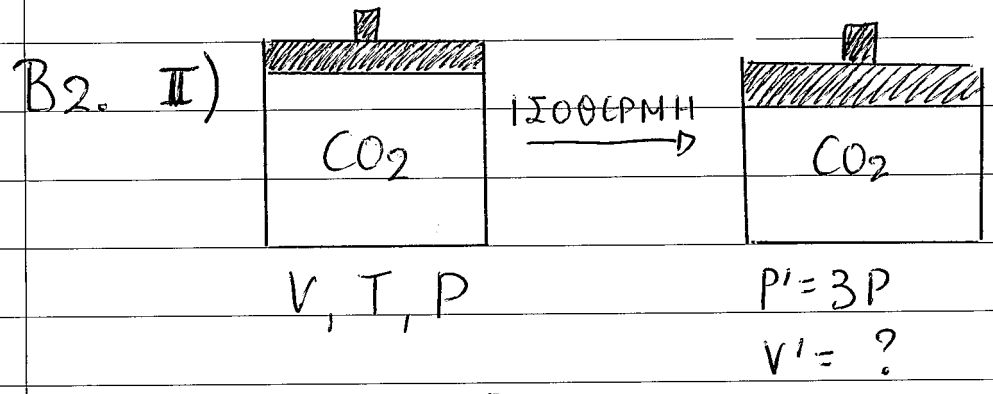 B2. II)
CO2
ΙΣΟΘΕΡΜΗ
CO2
V, T, P
P' = 3P
V' = ?